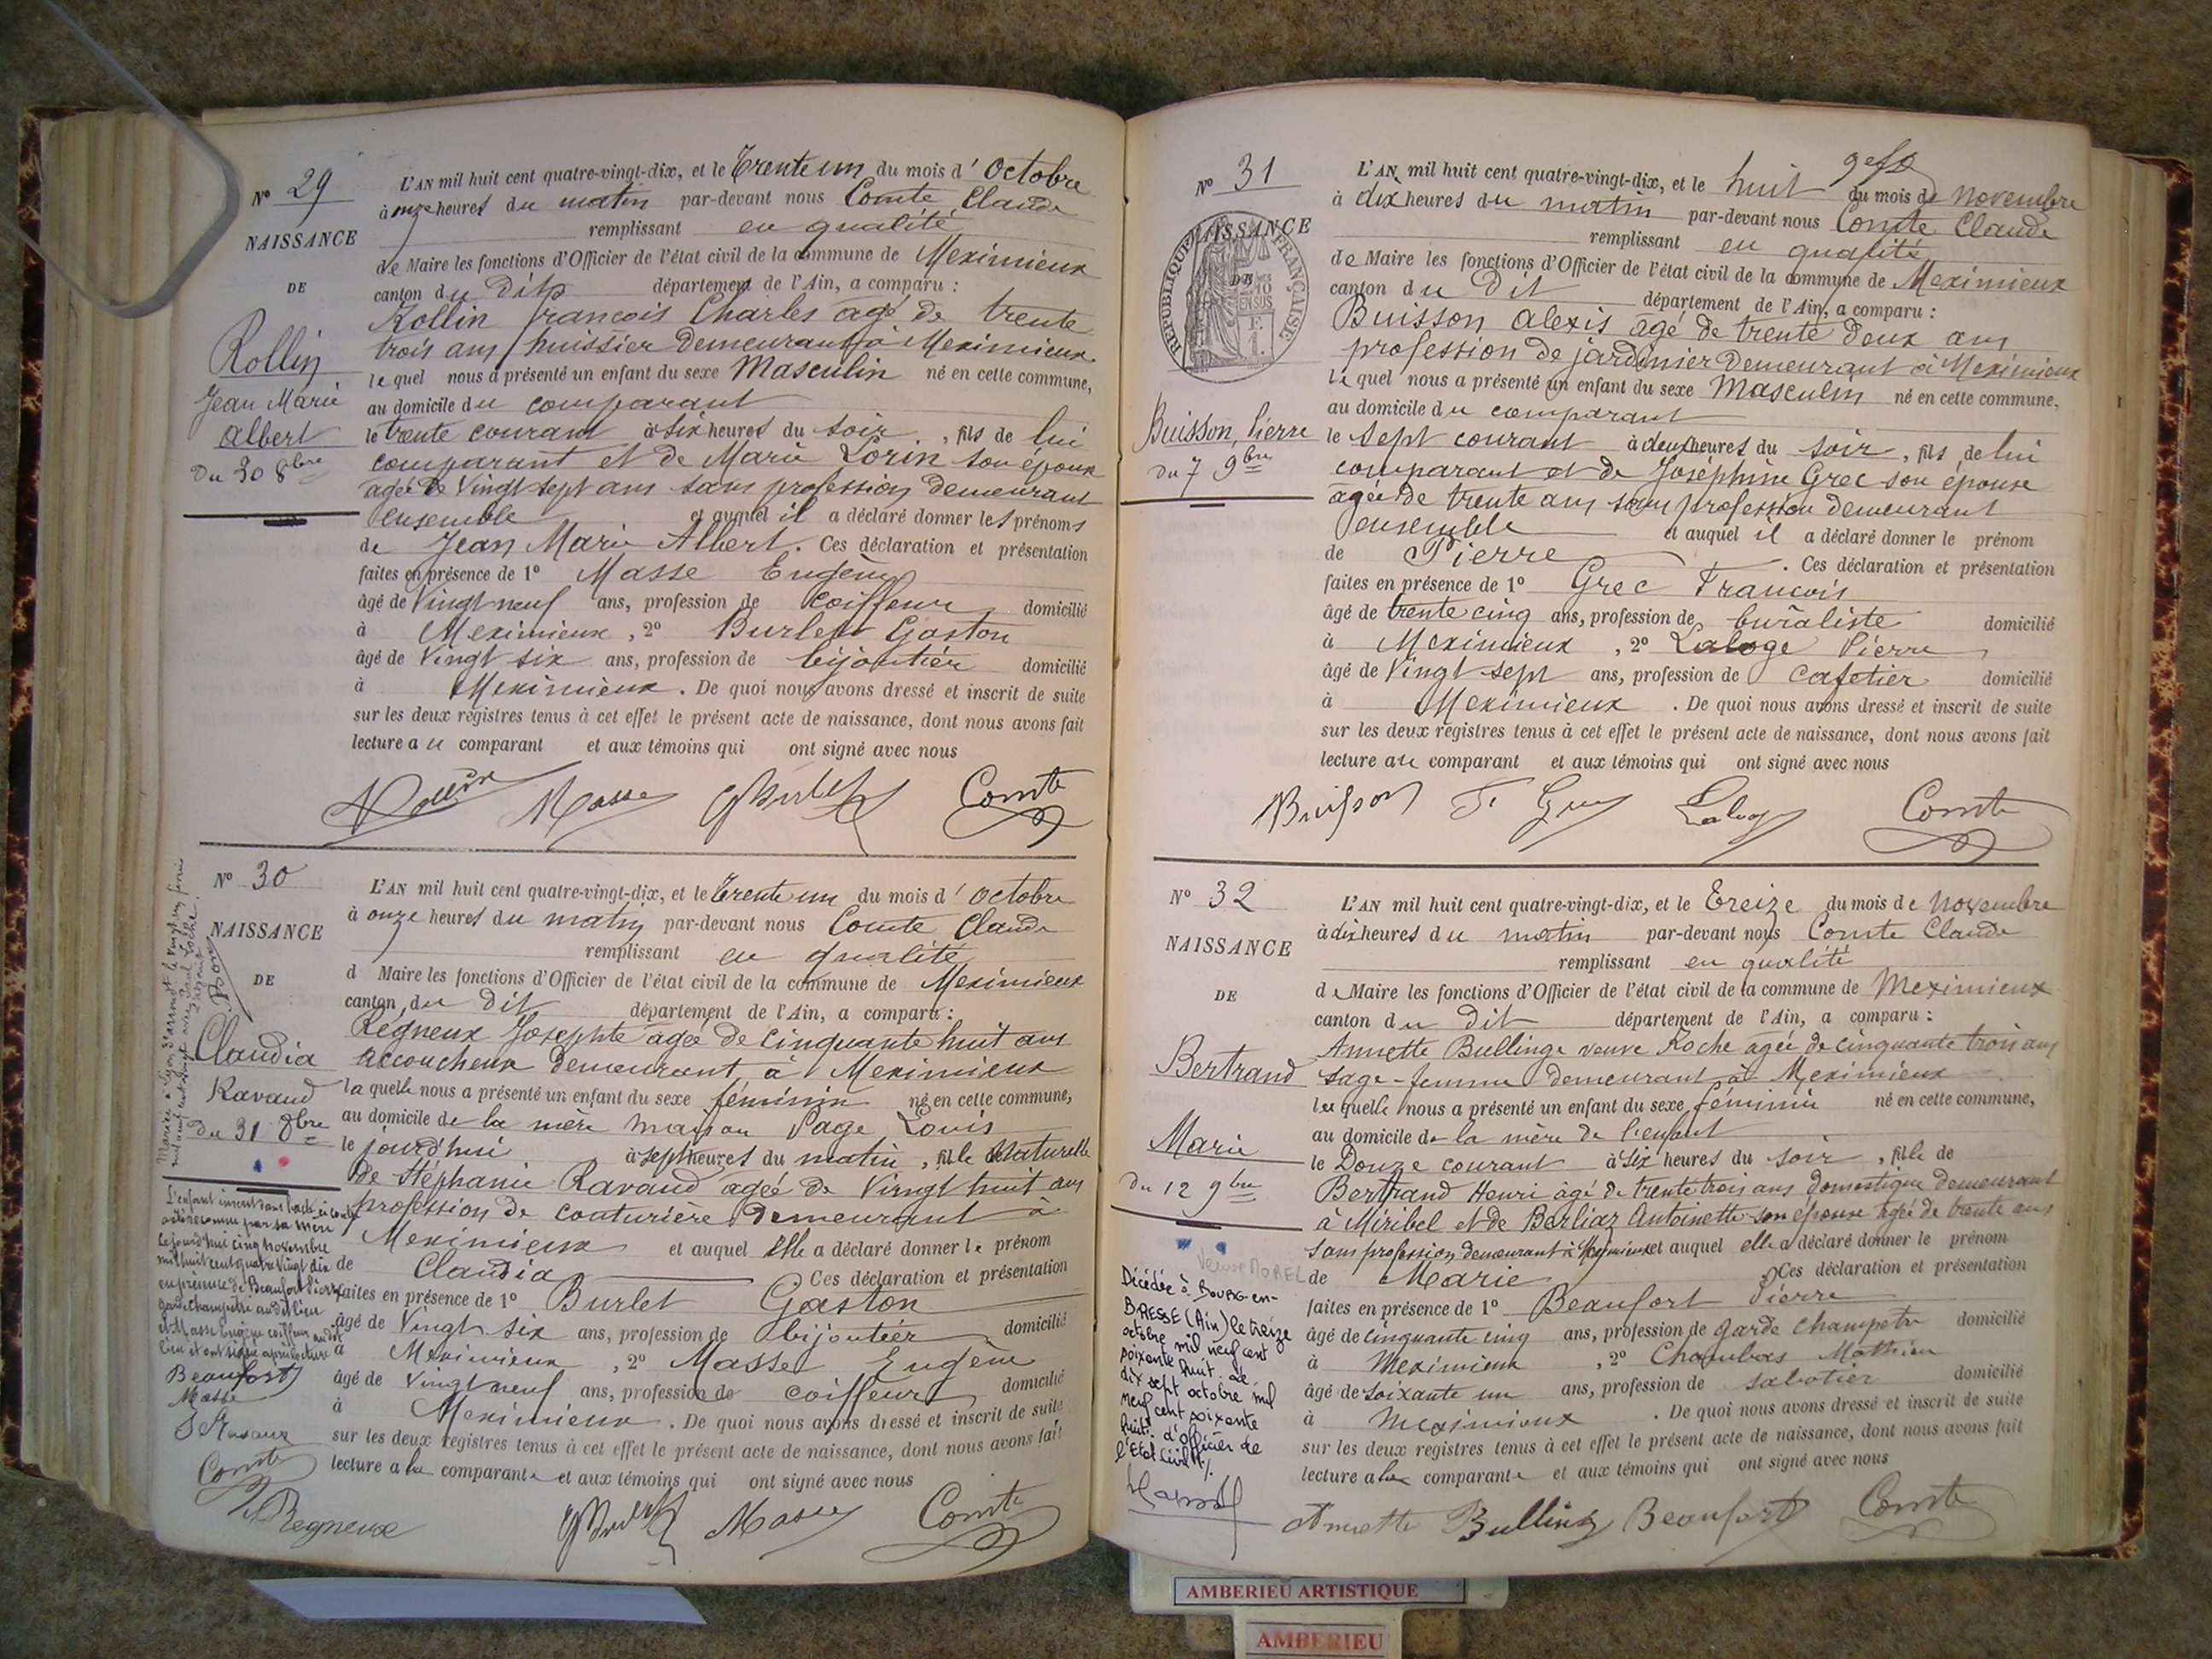 N° 29
NAISSANCE
DE
Rollin
Jean Marie
Albert
Du 30 8bre
L'AN mil huit cent quatre-vingt-dix, et le Trente un du mois d'Octobre
à onze heures du matin par-devant nous Comte Claude
remplissant en qualité
de Maire les fonctions d'Officier de l'état civil de la commune de Meximieux
canton du dit département de l'Ain, a comparu :
Rollin françois Charles agé de trente
trois ans huissier demeurant à Meximieux
lequel nous a présenté un enfant du sexe Masculin né en cette commune,
au domicile du comparant
le trente courant à six heures du soir, fils de lui
comparant et de Marie Lorin son épouse
agée de Vingt sept ans sans profession demeurant
ensemble et auquel il a déclaré donner les prénoms
de Jean Marie Albert. Ces déclaration et présentation
faites en présence de 1° Masse Eugène
âgé de Vingt neuf ans, profession de coiffeur domicilié
à Meximieux, 2° Burlet Gaston
âgé de Vingt six ans, profession de bijoutier domicilié
à Meximieux. De quoi nous avons dressé et inscrit de suite
sur les deux registres tenus à cet effet le présent acte de naissance, dont nous avons fait
lecture au comparant et aux témoins qui ont signé avec nous
Masse GBurlet Comte
N° 30
NAISSANCE
DE
Claudia
Ravaud
Du 31 8bre
L'enfant inscrit dans l'acte ci contre
a été reconnu par sa mère
Cejourd'hui cinq Novembre
mil huit cent quatre vingt dix
en présence de Beaufort Pierre
garde champêtre au dit lieu
et Masse Eugène coiffeur au dit
lieu et ont signé après lecture
Beaufort
Masse
S Ravaux
Comte
L'AN mil huit cent quatre-vingt-dix, et le Trente un du mois d'Octobre
à onze heures du matin par-devant nous Comte Claude
remplissant en qualité
d Maire les fonctions d'Officier de l'état civil de la commune de Meximieux
canton du dit département de l'Ain, a comparu :
Régneux Josephte agée de cinquante huit ans
accoucheux demeurant à Meximieux
la quelle nous a présenté un enfant du sexe féminin né en cette commune,
au domicile de la mère maison Page Louis
le jourd'hui à sept heures du matin, fille Naturelle
de Stéphanie Ravaud agée de Vingt huit ans
profession de couturière demeurant à
Meximieux et auquel Elle a déclaré donner le prénom
de Claudia Ces déclaration et présentation
faites en présence de 1° Burlet Gaston
âgé de Vingt six ans, profession de bijoutier domicilié
à Meximieux, 2° Masse Eugène
âgé de Vingt neuf ans, profession de coiffeur domicilié
à Meximieux. De quoi nous avons dressé et inscrit de suite
sur les deux registres tenus à cet effet le présent acte de naissance, dont nous avons fait
lecture a la comparante et aux témoins qui ont signé avec nous
Regneux GBurlet Masse Comte
N° 31
NAISSANCE
DE
RÉPUBLIQUE FRANÇAISE
Buisson Pierre
du 7 9bre
L'AN mil huit cent quatre-vingt-dix, et le huit du mois de Novembre
à dix heures du matin par-devant nous Comte Claude
remplissant en qualité
de Maire les fonctions d'Officier de l'état civil de la commune de Meximieux
canton du dit département de l'Ain, a comparu :
Buisson alexis âgé de trente deux ans
profession de jardinier demeurant à Meximieux
lequel nous a présenté un enfant du sexe Masculin né en cette commune,
au domicile du comparant
le sept courant à deux heures du soir, fils de lui
comparant et de Joséphine Grec son épouse
agée de trente ans sans profession demeurant
ensemble et auquel il a déclaré donner le prénom
de Pierre. Ces déclaration et présentation
faites en présence de 1° Grec Francois
âgé de trente cinq ans, profession de buraliste domicilié
à Meximieux, 2° Laloge Pierre
âgé de Vingt sept ans, profession de cafetier domicilié
à Meximieux. De quoi nous avons dressé et inscrit de suite
sur les deux registres tenus à cet effet le présent acte de naissance, dont nous avons fait
lecture au comparant et aux témoins qui ont signé avec nous
Buisson Comte
N° 32
NAISSANCE
DE
Bertrand
Marie
Du 12 9bre
Veuve MOREL
Décédée à BOURG-en-
BRESSE (Ain) le treize
octobre mil neuf cent
soixante huit. Le
dix sept octobre mil
neuf cent soixante
huit. L'officier de
l'Etat Civil
L'AN mil huit cent quatre-vingt-dix, et le Treize du mois de Novembre
à dix heures du matin par-devant nous Comte Claude
remplissant en qualité
de Maire les fonctions d'Officier de l'état civil de la commune de Meximieux
canton du dit département de l'Ain, a comparu :
Annette Bullinge veuve Roche agée de cinquante trois ans
sage-femme demeurant à Meximieux
la quelle nous a présenté un enfant du sexe féminin né en cette commune,
au domicile de la mère de l'enfant
le Douze courant à six heures du soir, fille de
Bertrand Henri âgé de trente trois ans domestique demeurant
à Miribel et de Barliaz Antoinette son épouse agée de trente ans
sans profession demeurant à Meximieux et auquel elle a déclaré donner le prénom
de Marie Ces déclaration et présentation
faites en présence de 1° Beaufort Pierre
âgé de cinquante cinq ans, profession de garde champetre domicilié
à Meximieux, 2° Chambas Mathieu
âgé de soixante un ans, profession de sabotier domicilié
à Meximieux. De quoi nous avons dressé et inscrit de suite
sur les deux registres tenus à cet effet le présent acte de naissance, dont nous avons fait
lecture a la comparante et aux témoins qui ont signé avec nous
Annette Bulling Beaufort Comte
AMBERIEU ARTISTIQUE
AMBERIEU